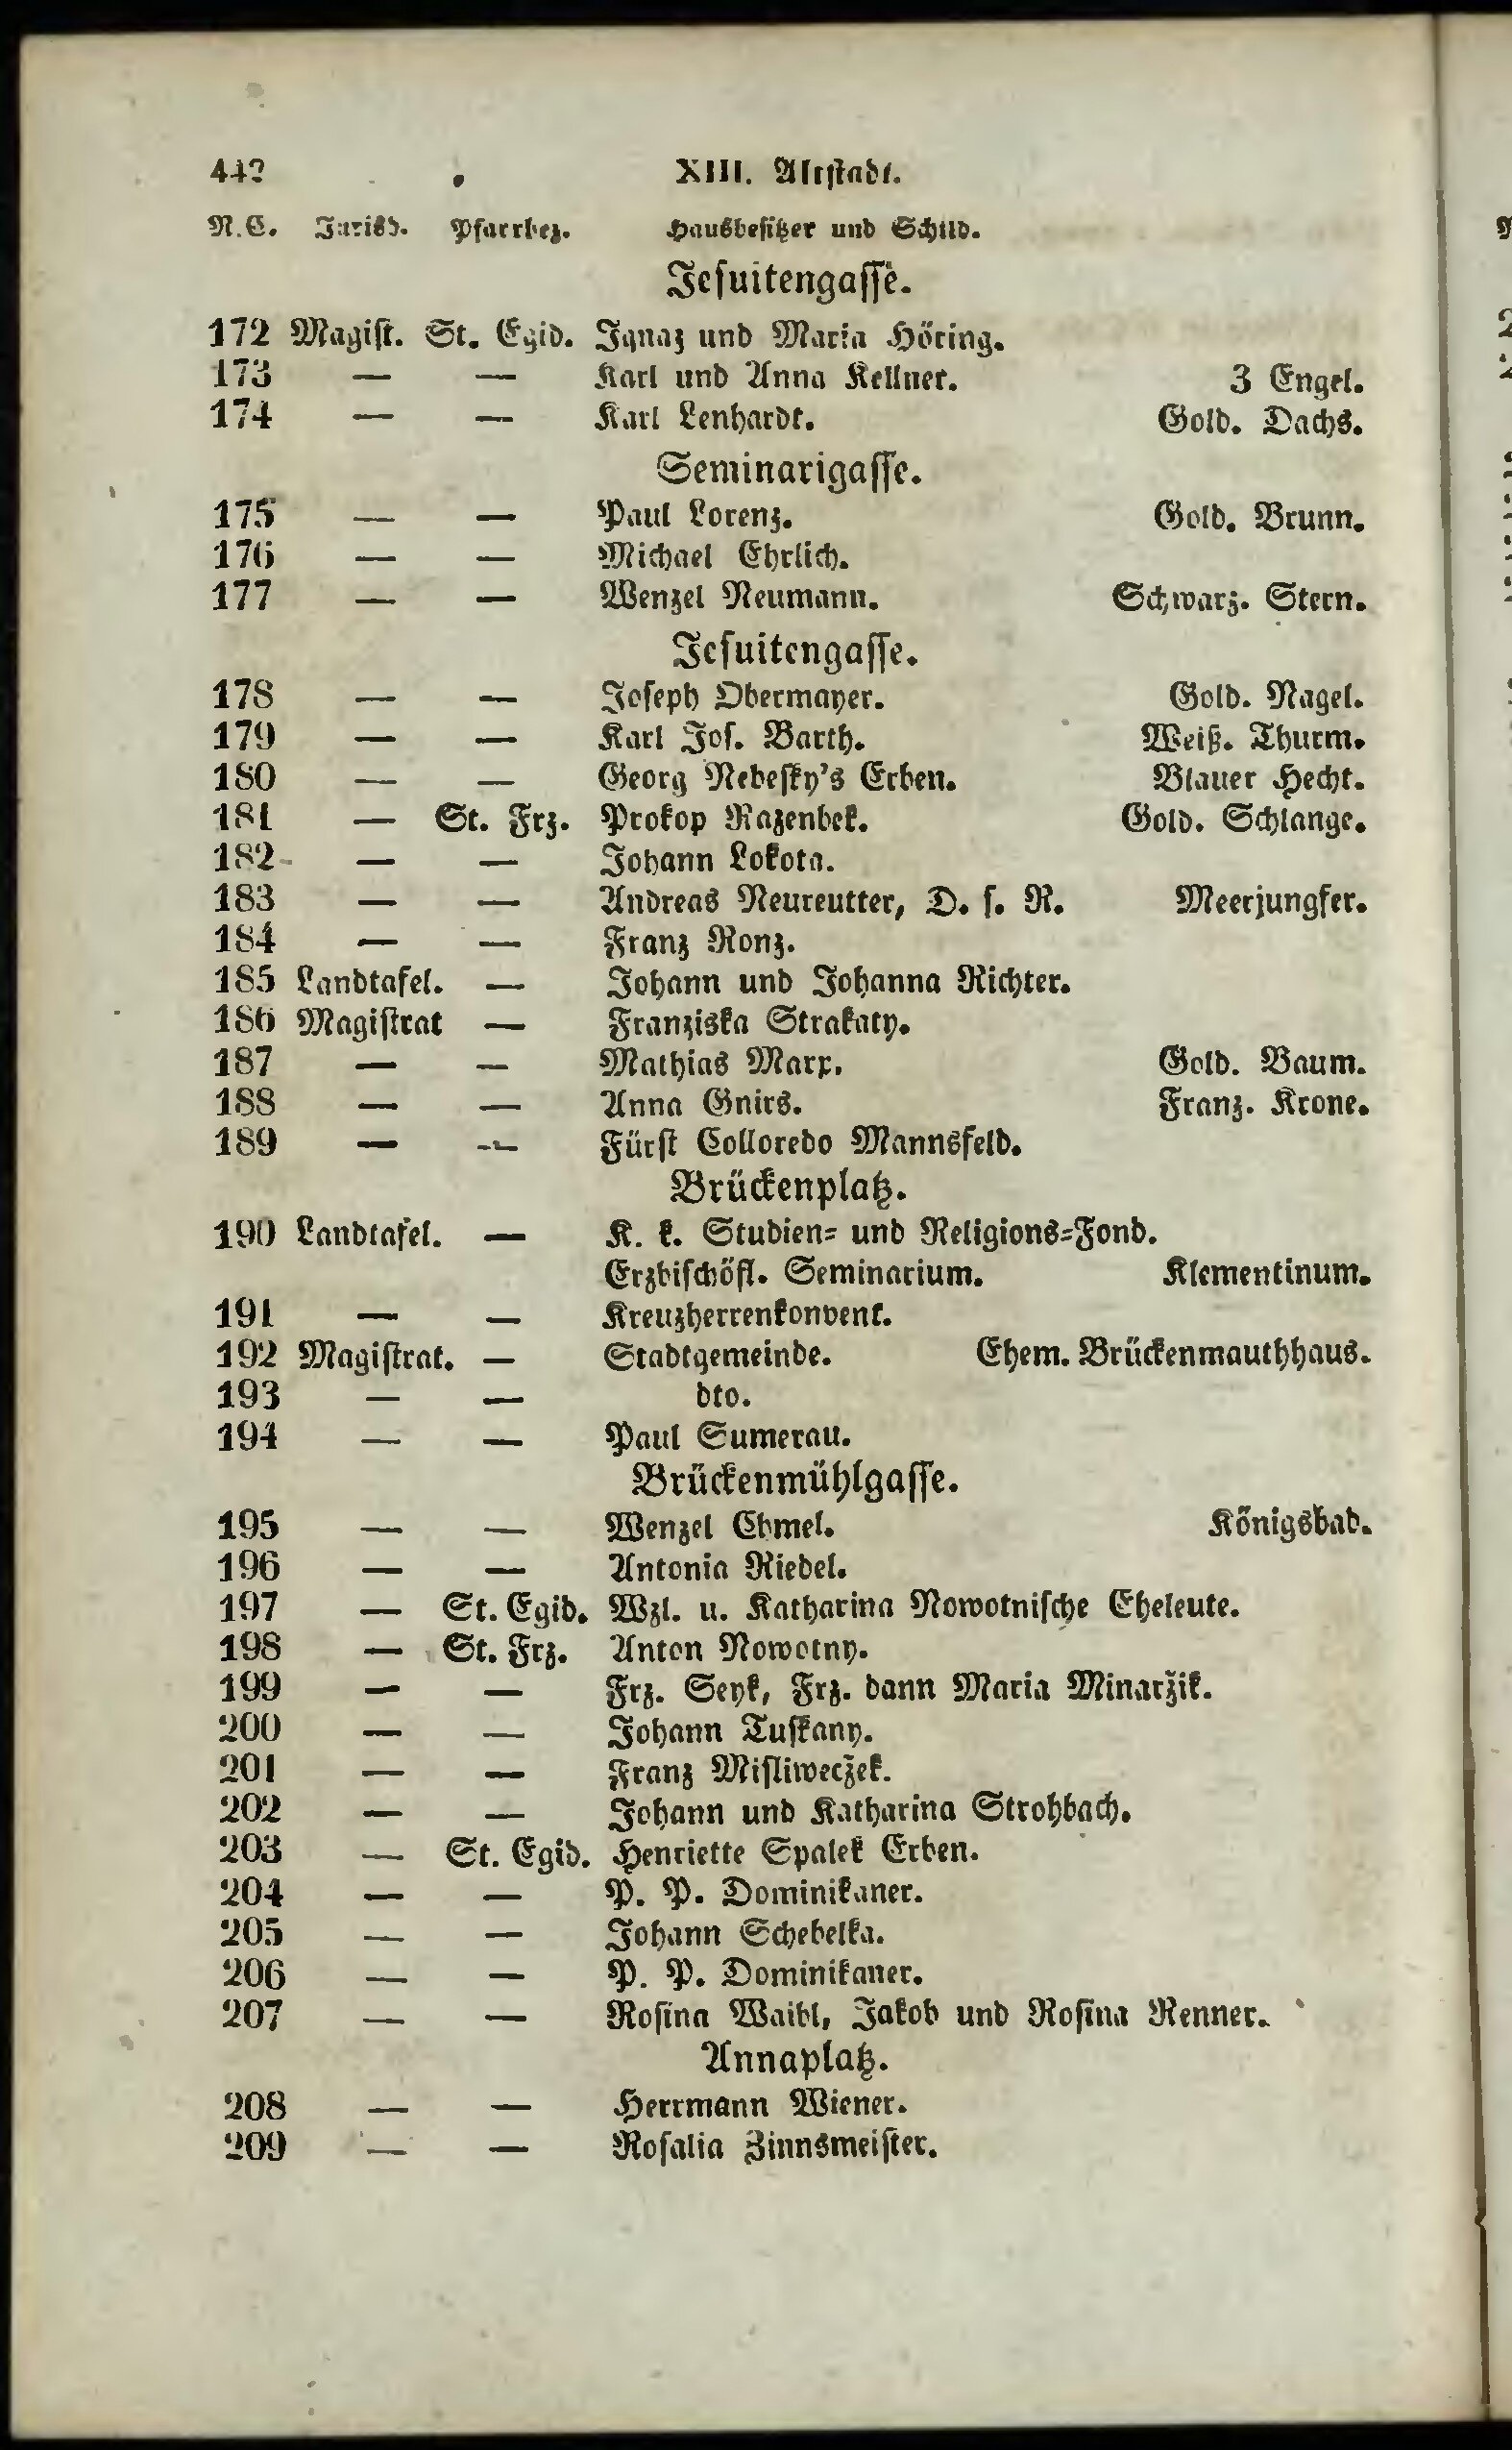 442 XIII. Altstadt.
N.C. Jurisd. Pfarrbez. Hausbesitzer und Schild.
Jesuitengasse.
172 Magist. St. Egid. Ignaz und Maria Höring.
173 — — Karl und Anna Kellner. 3 Engel.
174 — — Karl Lenhardt. Gold. Dachs.
Seminarigasse.
175 — — Paul Lorenz. Gold. Brunn.
176 — — Michael Ehrlich.
177 — — Wenzel Neumann. Schwarz. Stern.
Jesuitengasse.
178 — — Joseph Obermayer. Gold. Nagel.
179 — — Karl Jos. Barth. Weiß. Thurm.
180 — — Georg Nebesky's Erben. Blauer Hecht.
181 — St. Frz. Prokop Razenbek. Gold. Schlange.
182 — — Johann Lokota.
183 — — Andreas Neureutter, D. s. R. Meerjungfer.
184 — — Franz Ronz.
185 Landtafel. — Johann und Johanna Richter.
186 Magistrat — Franziska Strakaty.
187 — — Mathias Marx. Gold. Baum.
188 — — Anna Gnirs. Franz. Krone.
189 — — Fürst Colloredo Mannsfeld.
Brückenplatz.
190 Landtafel. — K. k. Studien- und Religions-Fond.
Erzbischöfl. Seminarium. Klementinum.
191 — — Kreuzherrenkonvent.
192 Magistrat. — Stadtgemeinde. Ehem. Brückenmauthhaus.
193 — — dto.
194 — — Paul Sumerau.
Brückenmühlgasse.
195 — — Wenzel Chmel. Königsbad.
196 — — Antonia Riedel.
197 — St. Egid. Wzl. u. Katharina Nowotnische Eheleute.
198 — St. Frz. Anton Nowotny.
199 — — Frz. Seyk, Frz. dann Maria Minaržik.
200 — — Johann Tuskany.
201 — — Franz Misliweczek.
202 — — Johann und Katharina Strohbach.
203 — St. Egid. Henriette Spalek Erben.
204 — — P. P. Dominikaner.
205 — — Johann Schebelka.
206 — — P. P. Dominikaner.
207 — — Rosina Waibl, Jakob und Rosina Renner.
Annaplatz.
208 — — Herrmann Wiener.
209 — — Rosalia Zinnsmeister.